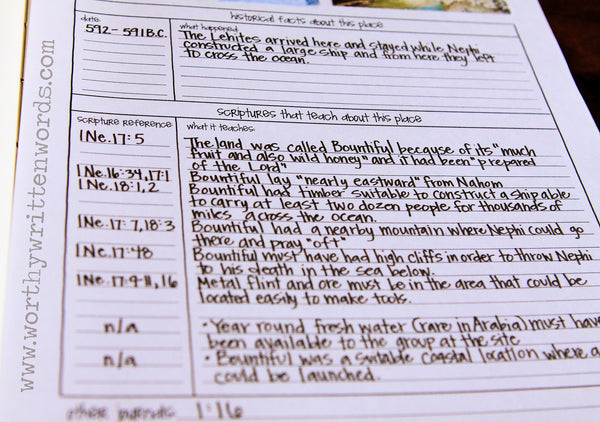 historical facts about this place
date: what happened:
592-591 B.C. The Lehites arrived here and stayed while Nephi
constructed a large ship and from here they left
to cross the ocean.
scriptures that teach about this place
scripture reference what it teaches:
1 Ne. 17:5 The land was called Bountiful because of its "much
fruit and also wild honey" and it had been "prepared
of the Lord"
1 Ne. 16:34, 17:1 Bountiful lay "nearly eastward" from Nahom
1 Ne. 18:1, 2 Bountiful had timber suitable to construct a ship able
to carry at least two dozen people for thousands of
miles across the ocean.
1 Ne. 17:7, 18:3 Bountiful had a nearby mountain where Nephi could go
there and pray "oft"
1 Ne. 17:48 Bountiful must have had high cliffs in order to throw Nephi
to his death in the sea below.
1 Ne. 17:9-11, 16 Metal flint and ore must be in the area that could be
located easily to make tools.
n/a • Year round fresh water (rare in Arabia) must have
been available to the group at the site
n/a • Bountiful was a suitable coastal location where a
could be launched.
1:16
www.worthywrittenwords.com